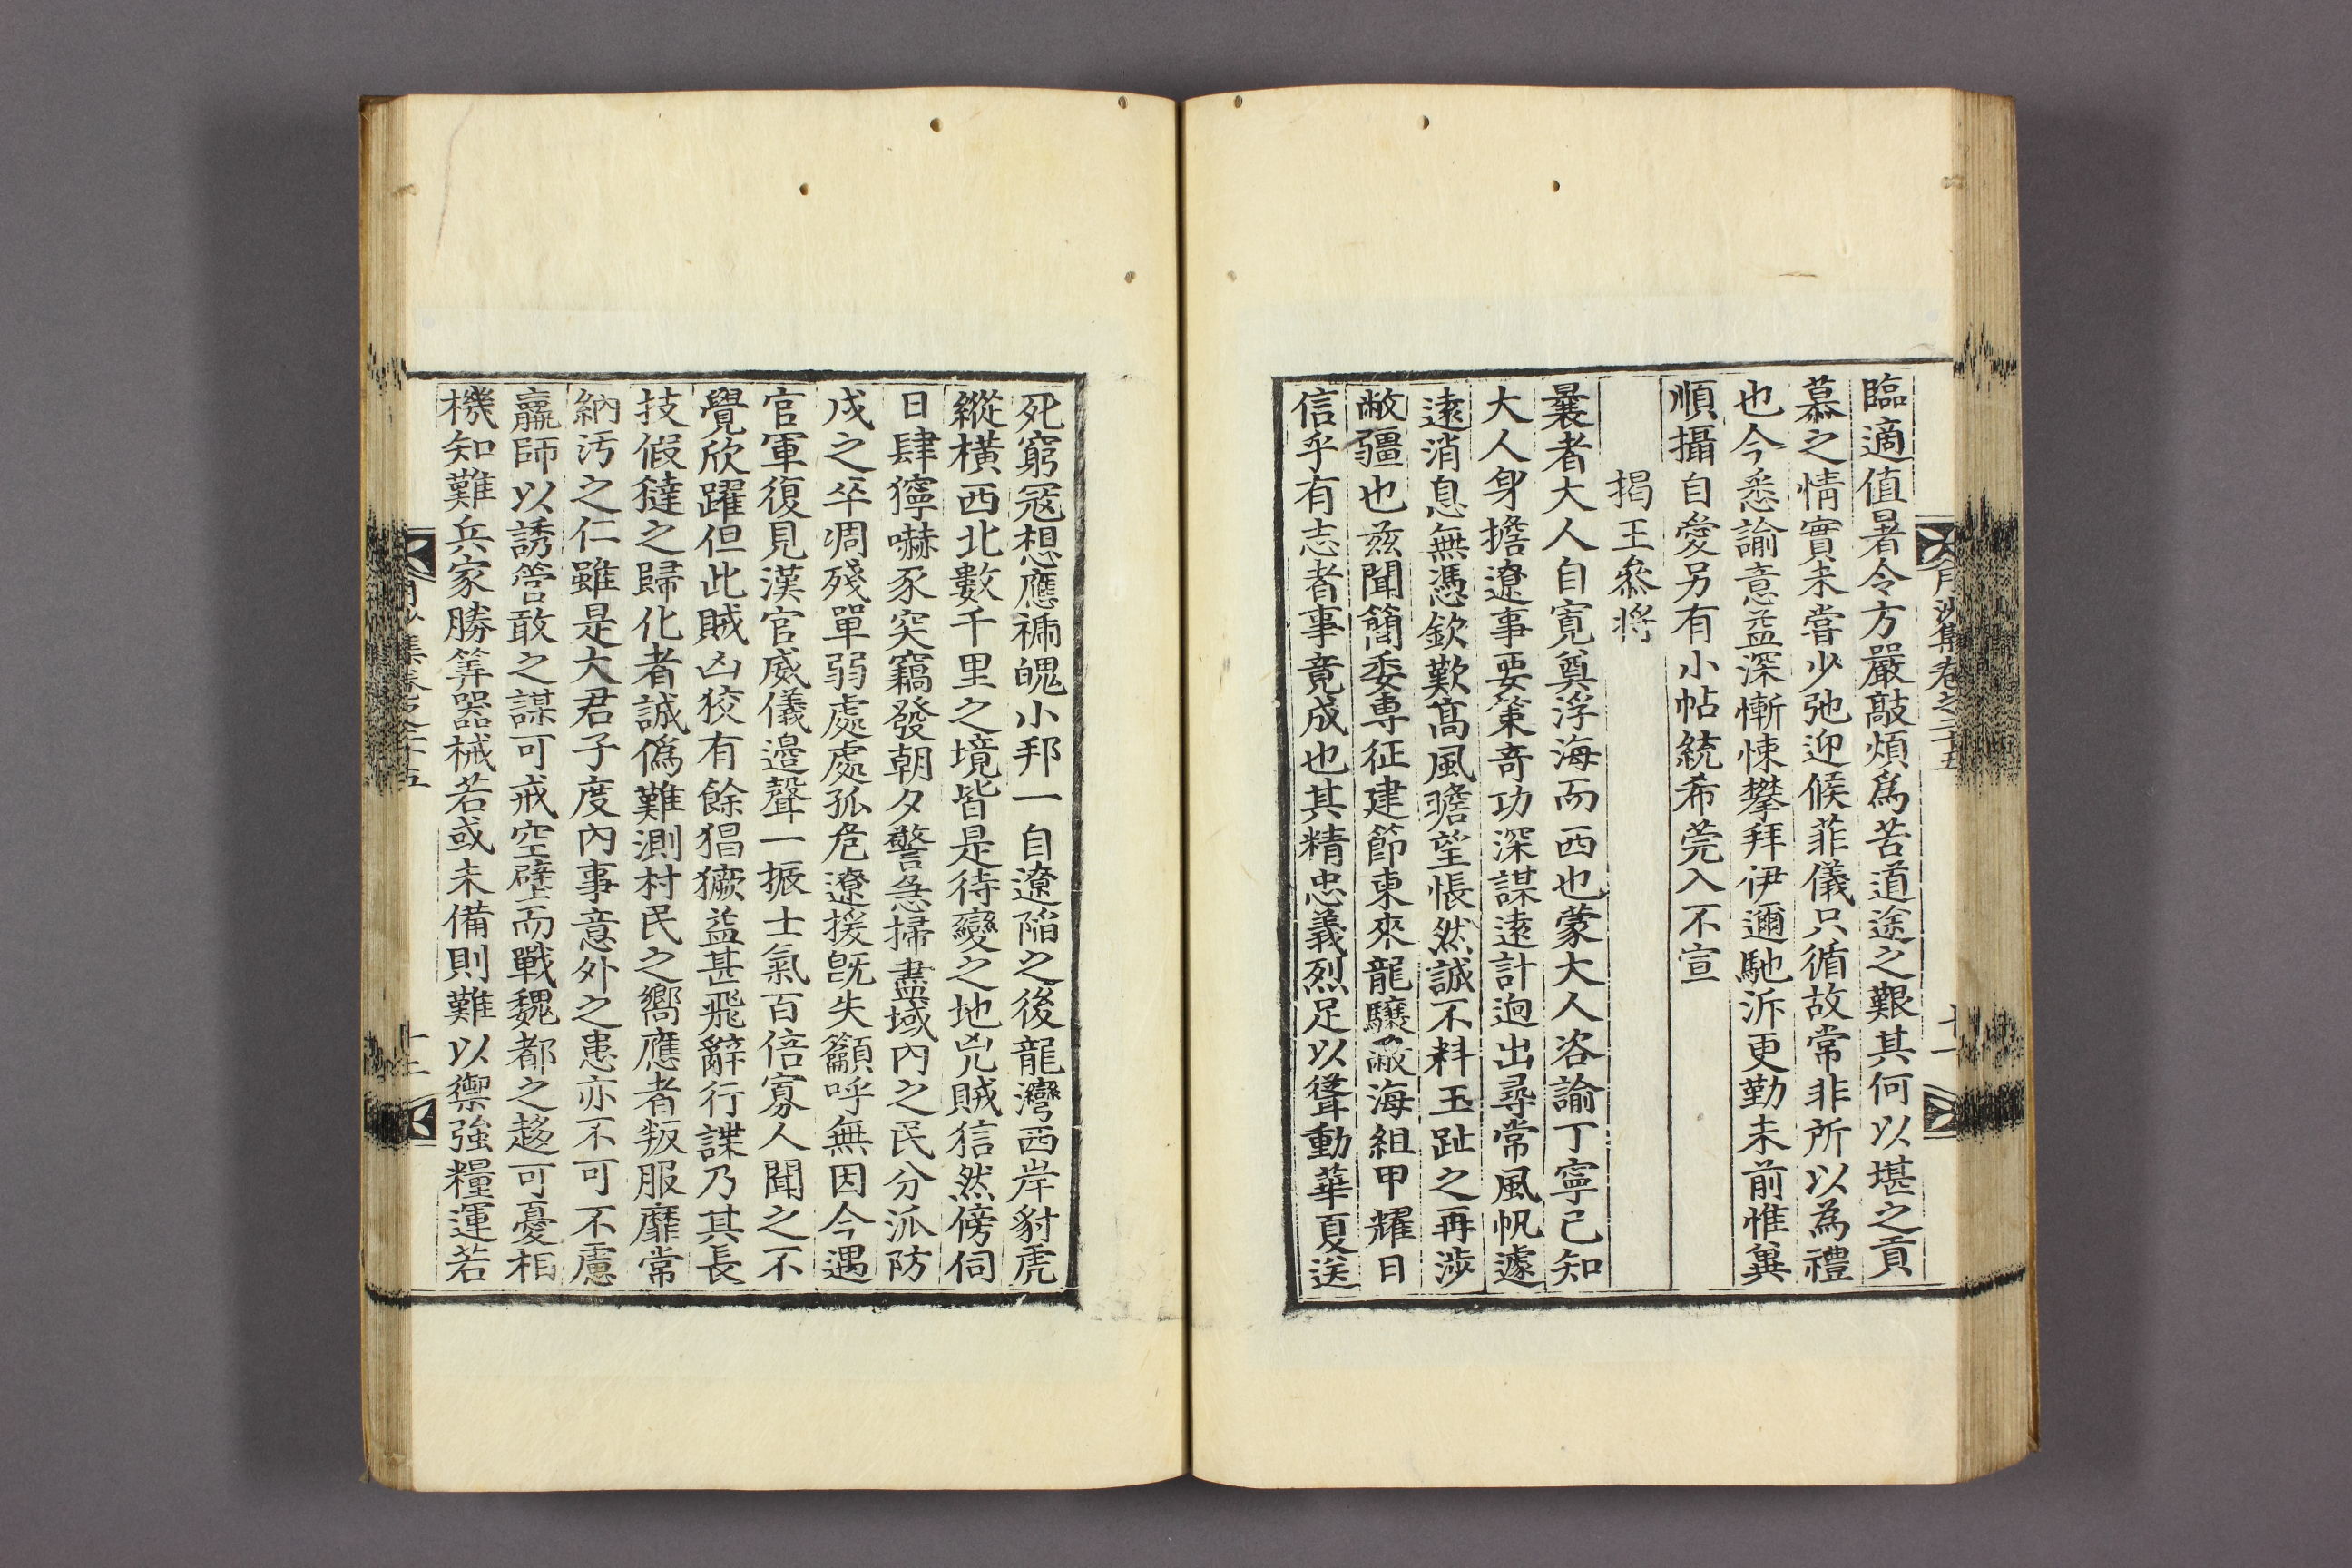 月沙集卷之二十五
十一
臨適値暑令方嚴敲煩爲苦道途之艱其何以堪之貢
慕之情實未嘗少弛迎候菲儀只循故常非所以為禮
也今悉諭意益深慚悚攀拜伊邇馳泝更勤未前惟冀
順攝自愛另有小帖統希莞入不宣
揭王叅將
曩者大人自寛奠浮海而西也蒙大人咨諭丁寧已知
大人身擔遼事要策奇功深謀遠計逈出尋常風帆遽
遠消息無憑欽歎高風瞻望悵然誠不料玉趾之再涉
敝疆也玆聞簡委專征建節東來龍驤蔽海組甲耀日
信乎有志者事竟成也其精忠義烈足以聳動華夏送
死窮冦想應褫魄小邦一自遼陷之後龍灣西岸豺虎
縱橫西北數千里之境皆是待變之地兇賊信然傍伺
日肆獰嚇豕突竊發朝夕警急掃盡域內之民分派防
戍之卒凋殘單弱處處孤危遼援旣失籲呼無因今遇
官軍復見漢官威儀邉聲一振士氣百倍寡人聞之不
覺欣躍但此賊凶狡有餘猖獗益甚飛辭行諜乃其長
技假㺚之歸化者誠僞難測村民之嚮應者叛服靡常
納汚之仁雖是大君子度內事意外之患亦不可不慮
羸師以誘管敢之謀可戒空壁而戰魏都之趍可憂相
機知難兵家勝筭器械若或未備則難以禦強糧運若
月沙集卷之二十五
十二